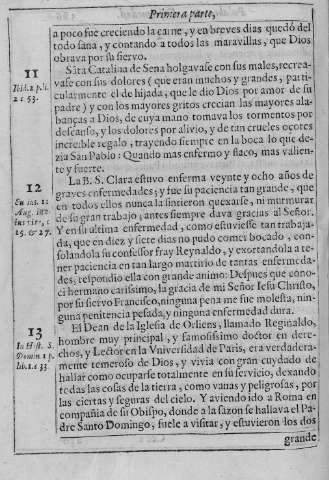 Primera parte,
a poco fue creciendo la carne, y en breves dias quedó del
todo sana, y contando a todos las maravillas, que Dios
obrava por su siervo.
11
Ibid. 2. p. li.
2 c. 53.
Sãta Catalina de Sena holgavase con sus males, recrea-
vase con sus dolores (que eran muchos y grandes, parti-
cularmente el de hijada, que le dio Dios por amor de su
padre) y con los mayores gritos crecian las mayores ala-
banças a Dios, de cuya mano tomava los tormentos por
descanso, y los dolores por alivio, y de tan crueles açores
increible regalo, trayendo siempre en la boca lo que de-
zia San Pablo: Quando mas enfermo y flaco, mas valien-
te y fuerte.
12
En sus. 12
Aug.
c.
25. & 27.
La B. S. Clara estuvo enferma veynte y ocho años de
graves enfermedades; y fue su paciencia tan grande, que
en todos ellos nunca la sintieron quexarse, ni murmurar
de su gran trabajo; antes siempre dava gracias al Señor.
Y en su ultima enfermedad, como estuviesse tan trabaja-
da, que en diez y siete dias no pudo comer bocado, con-
solandola su confessor fray Reynaldo, y exortandola a te-
ner paciencia en tan largo martirio de tantas enfermeda-
des, respondio ella con grande animo: Despues que cono-
ci hermano carissimo, la gracia de mi Señor Iesu Christo,
por su siervo Francisco, ninguna pena me fue molesta, nin-
guna penitencia pesada, y ninguna enfermedad dura.
13
In Hist. S.
Domin. 1 p.
lib. 1. c 33.
El Dean de la Iglesia de Orliens, llamado Reginaldo,
hombre muy principal, y famosissimo doctor en dere-
chos, y Lector en la Vniversidad de Paris, era verdadera-
mente temeroso de Dios, y vivia con gran cuydado de
hallar como ocuparse totalmente en su servicio, dexando
todas las cosas de la tierra, como vanas y peligrosas, por
las ciertas y seguras del cielo. Y aviendo ido a Roma en
compañia de su Obispo, donde a la sazon se hallava el Pa-
dre Santo Domingo, fuele a visitar, y estuvieron los dos
grande